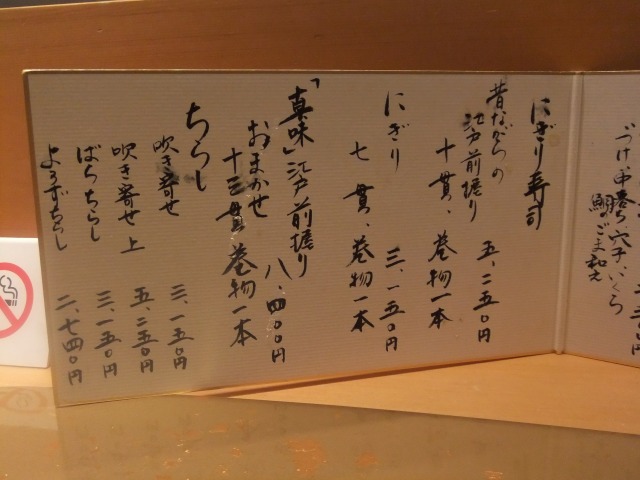 づけ、中とろ、穴子、いくら
鯛のごま和え
にぎり寿司
昔ながらの
江戸前握り 五、二五〇円
十貫、巻物一本
にぎり 三、一五〇円
七貫、巻物一本
「真味」江戸前握り
おまかせ 八、四〇〇円
十三貫、巻物一本
ちらし
吹き寄せ 三、一五〇円
吹き寄せ 上 五、二五〇円
ばらちらし 三、一五〇円
よろずちらし 二、七四〇円